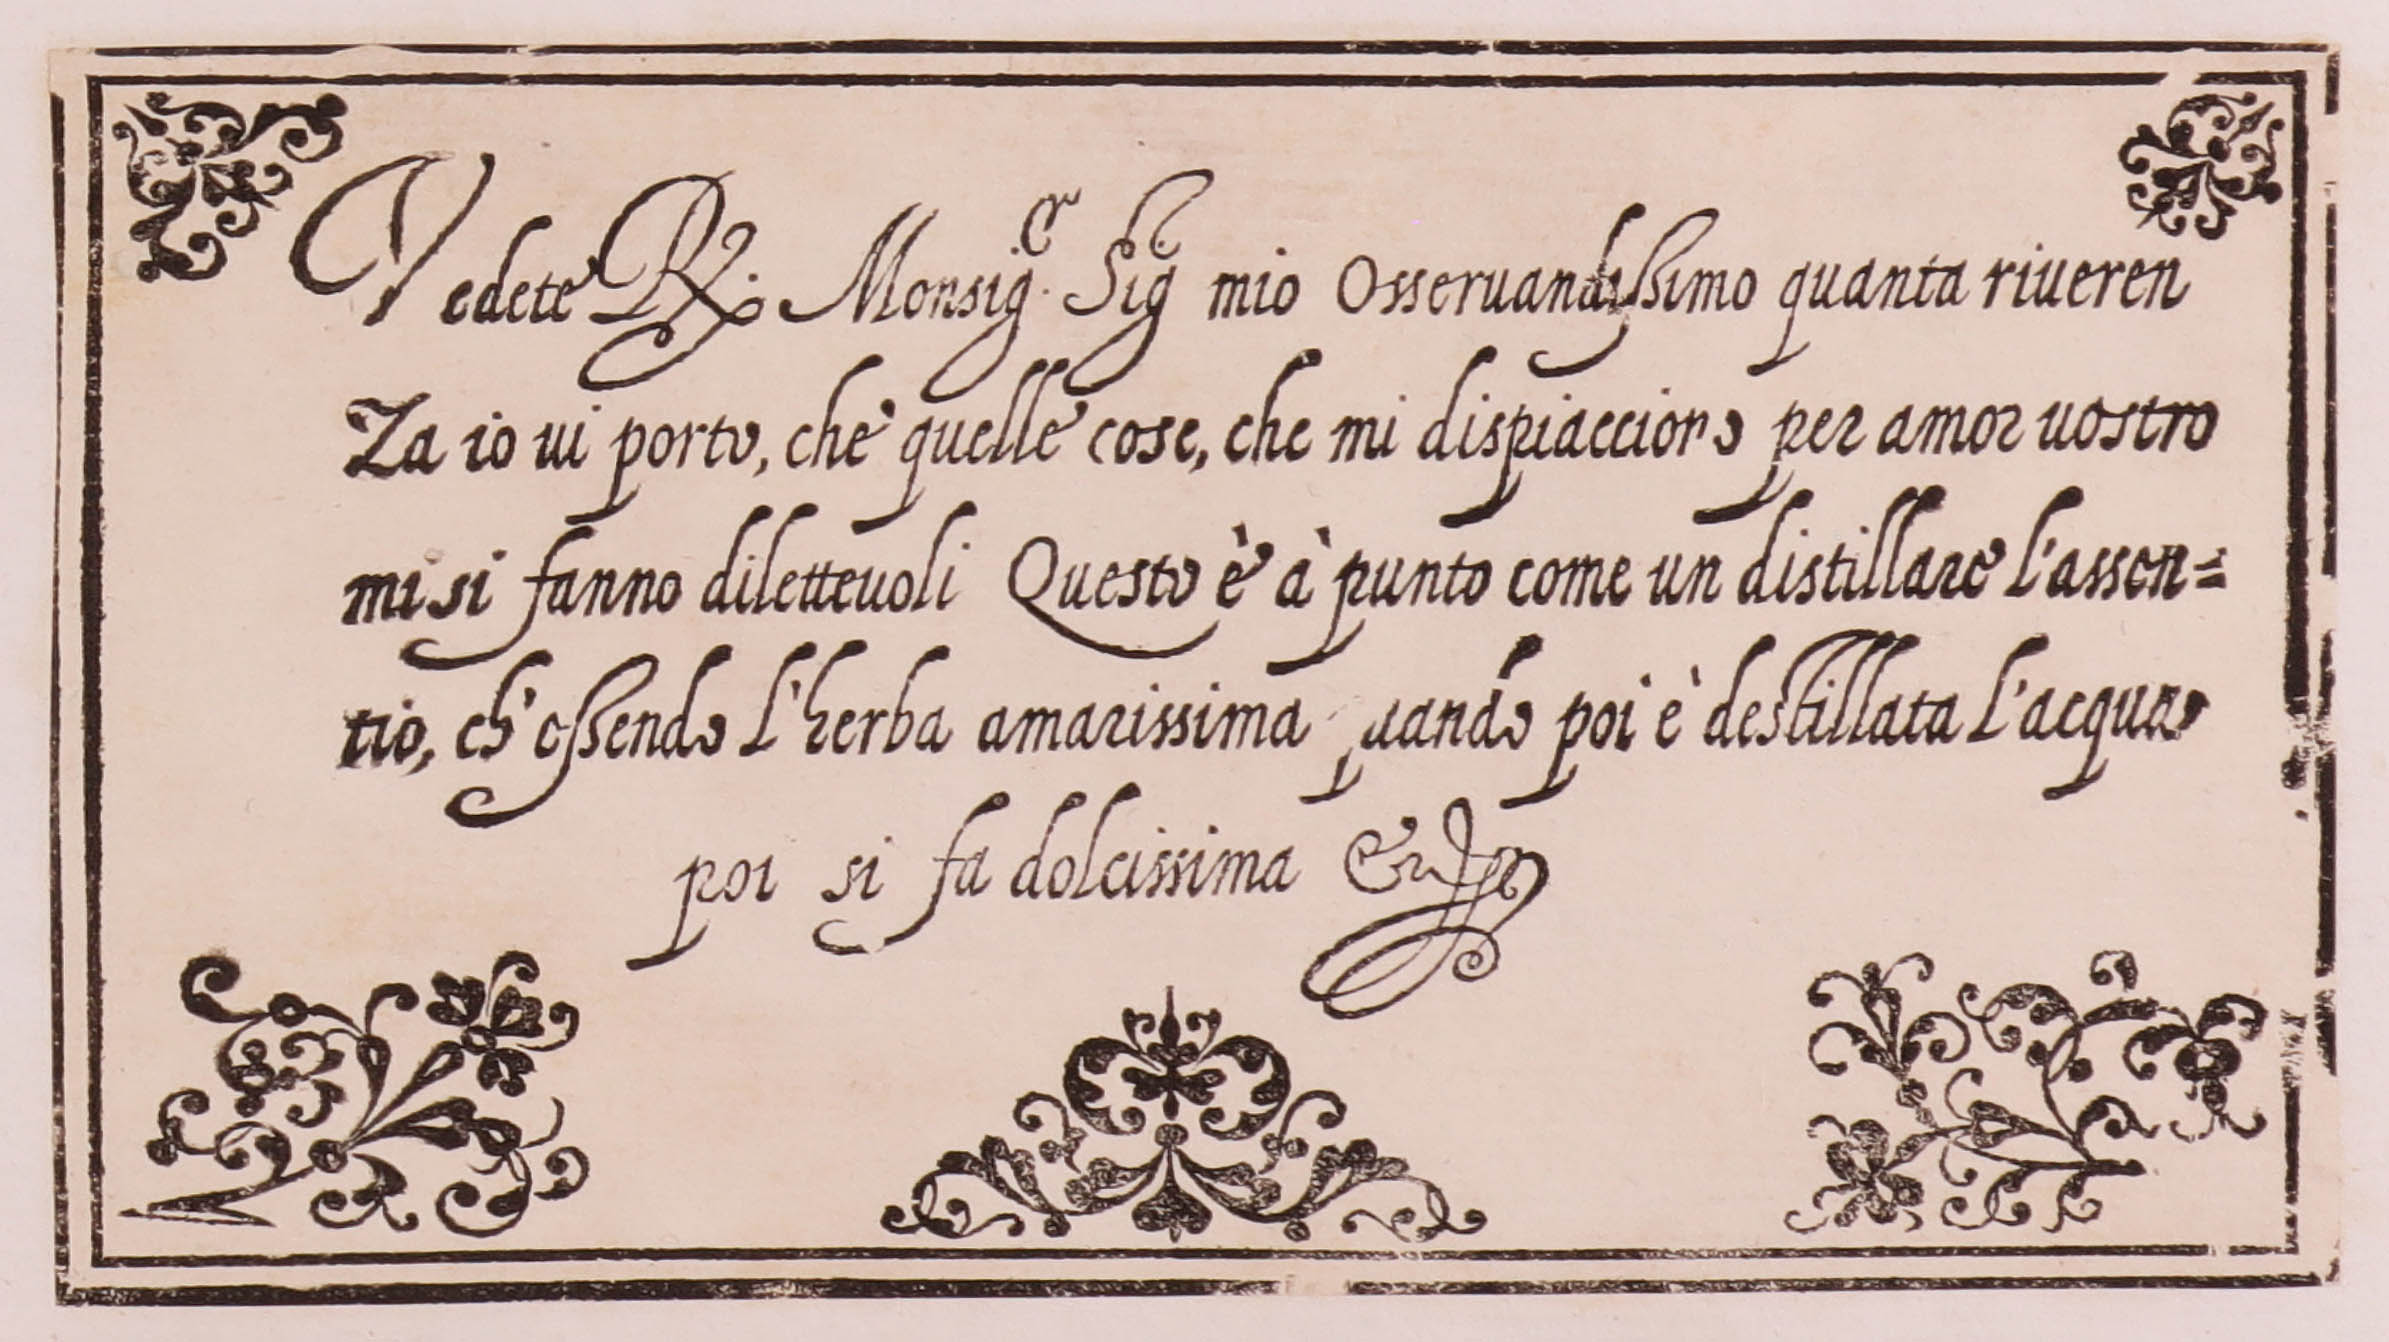 Vedete R. Monsig.r Sig.r mio Osseruandissimo quanta riueren
Za io ui porto, che quelle cose, che mi dispiacciono per amor uostro
mi si fanno diletteuoli Questo è à punto come un distillare l'assen=
tio, ch'essendo l'herba amarissima quando poi è destillata l'acqua
poi si fa dolcissima